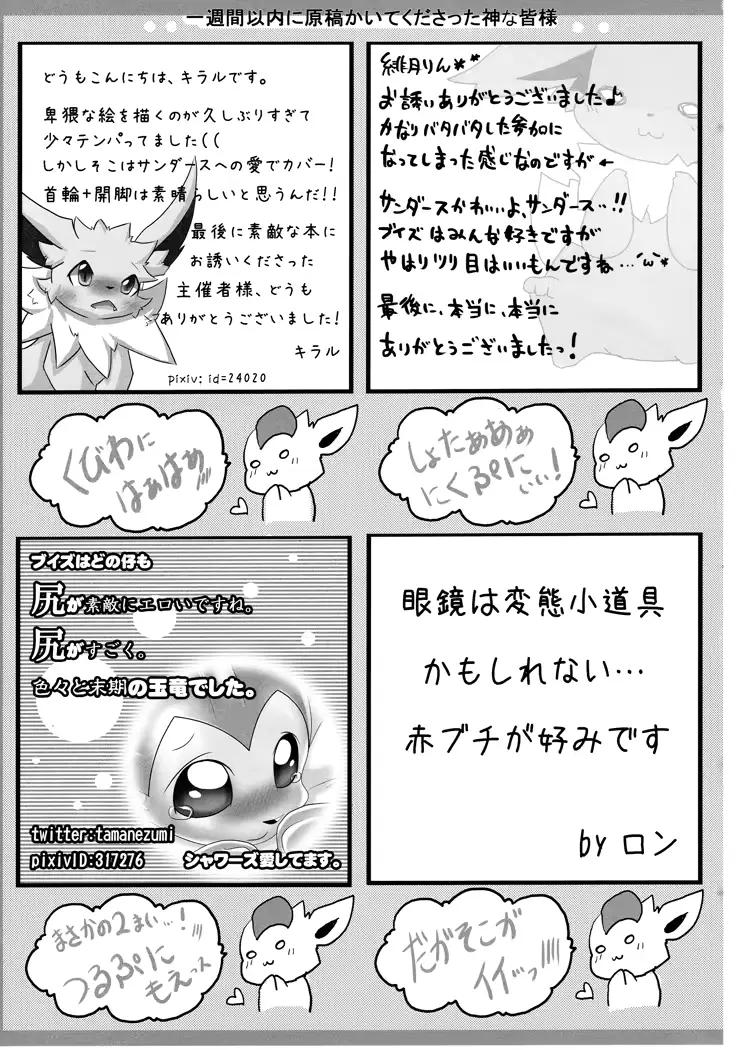 一週間以内に原稿かいてくださった神な皆様
どうもこんにちは、キラルです。
卑猥な絵を描くのが久しぶりすぎて
少々テンパってました((
しかしそこはサンダースへの愛でカバー!
首輪+開脚は素晴らしいと思うんだ!!
最後に素敵な本に
お誘いくださった
主催者様、どうも
ありがとうございました!
キラル
pixiv: id=24020
緋月りん**
お誘いありがとうございました♪
かなりバタバタした参加に
なってしまった感じなのですが←
サンダースかわいいよ、サンダース…!!
ブイズはみんな好きですが
やはりツリ目はいいもんですね…´ω`*
最後に、本当に、本当に
ありがとうございましたっ!
くびわに
はぁはぁ
しょたぁぁぁ
にくぷに
いい!
ブイズはどの仔も
尻が素敵にエロいですね。
尻がすごく。
色々と末期の玉竜でした。
twitter:tamanezumi
pixivID:317276
シャワーズ愛してます。
眼鏡は変態小道具
かもしれない…
赤ブチが好みです
by ロン
まさかの2まい…!
つるぷに
もえっス
だがそこが
イイッっ!!!!